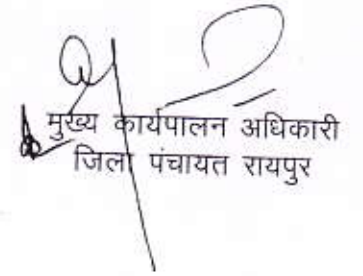 मुख्य कार्यपालन अधिकारी
जिला पंचायत रायपुर